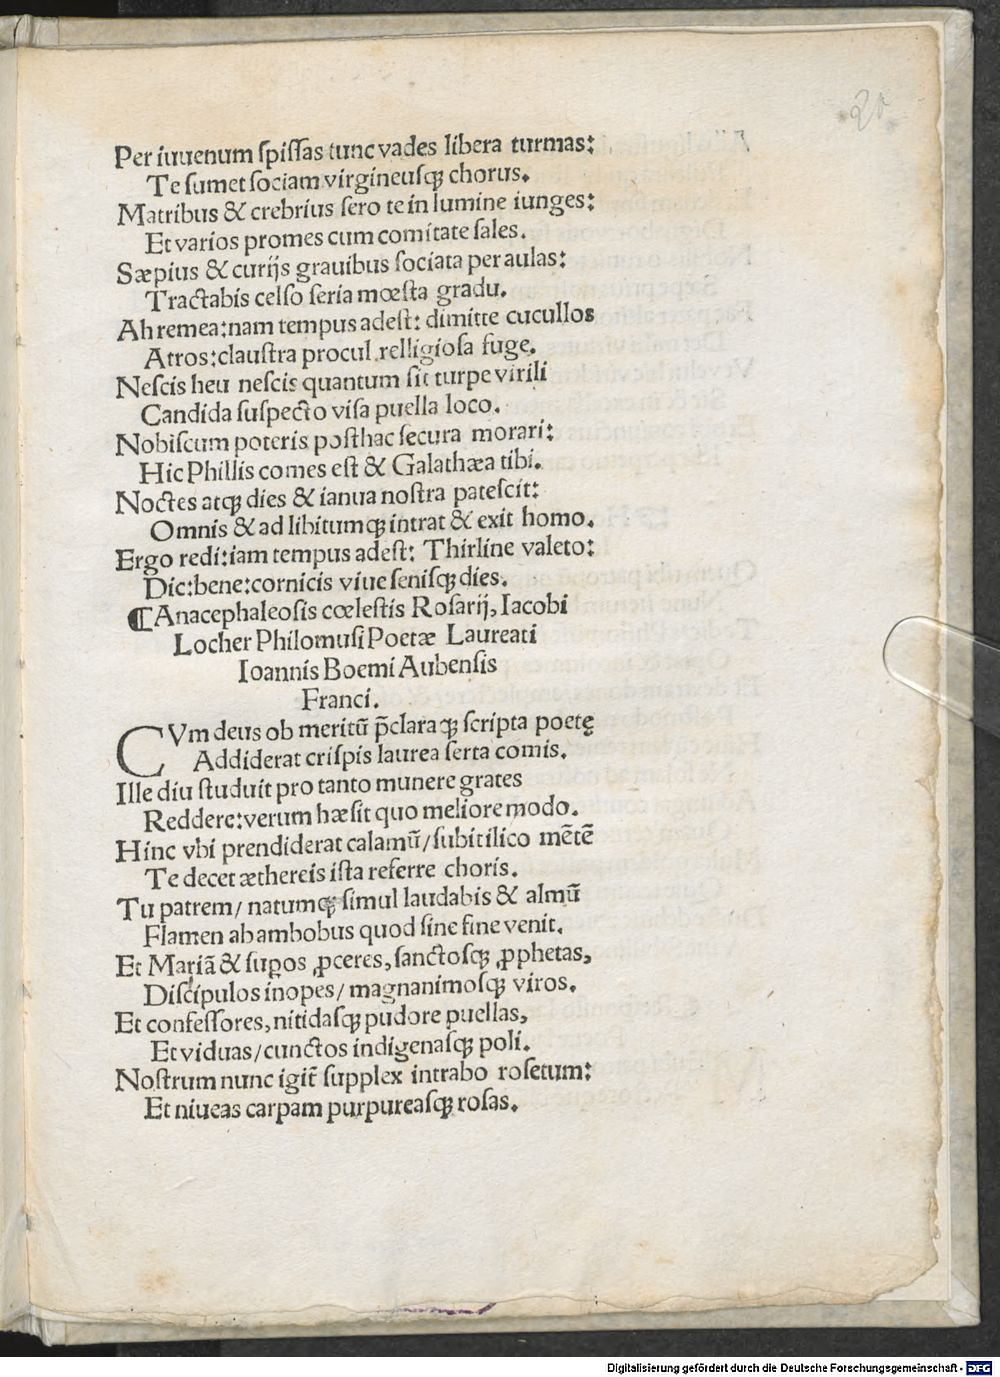 20
Per iuuenum ſpiſſas tunc vades libera turmas:
Te ſumet ſociam virgineuſqꝫ chorus.
Matribus & crebrius ſero te in lumine iunges:
Et varios promes cum comitate ſales.
Sæpius & curijs grauibus ſociata per aulas:
Tractabis celſo ſeria mœſta gradu.
Ah remea: nam tempus adeſt: dimitte cucullos
Atros: clauſtra procul relligioſa fuge.
Neſcis heu neſcis quantum ſit turpe virili
Candida ſuſpecto viſa puella loco.
Nobiſcum poteris poſthac ſecura morari:
Hic Phillis comes eſt & Galathæa tibi.
Noctes atqꝫ dies & ianua noſtra pateſcit:
Omnis & ad libitumqꝫ intrat & exit homo.
Ergo redi: iam tempus adeſt: Thirſine valeto:
Dic: bene: cornicis viue ſeniſqꝫ dies.
¶ Anacephaleoſis cœleſtis Roſarij, Iacobi
Locher Philomuſi Poetæ Laureati
Ioannis Boemi Aubenſis
Franci.
CVm deus ob meritū p̄claraqꝫ ſcripta poetę
Addiderat criſpis laurea ſerta comis.
Ille diu ſtuduit pro tanto munere grates
Reddere: verum hæſit quo meliore modo.
Hinc vbi prendiderat calamū/ ſubit ilico mētē
Te decet æthereis iſta referre choris.
Tu patrem/ natumqꝫ ſimul laudabis & almū
Flamen ab ambobus quod ſine fine venit.
Et Mariā & ſuꝑos ꝓceres, ſanctoſqꝫ ꝓphetas,
Diſcipulos inopes/ magnanimoſqꝫ viros.
Et confeſſores, nitidaſqꝫ pudore puellas,
Et viduas/ cunctos indigenaſqꝫ poli.
Noſtrum nunc igit̄ ſupplex intrabo roſetum:
Et niueas carpam purpureaſqꝫ roſas.
Digitalisierung gefördert durch die Deutsche Forschungsgemeinschaft - DFG